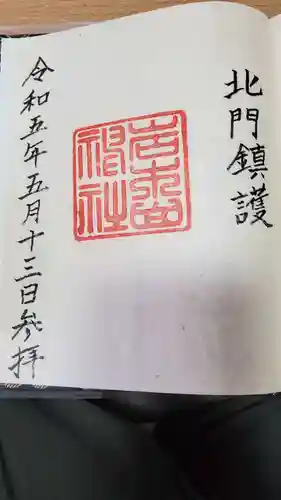 北門鎮護
岩木山
神社
令和五年五月十三日参拝